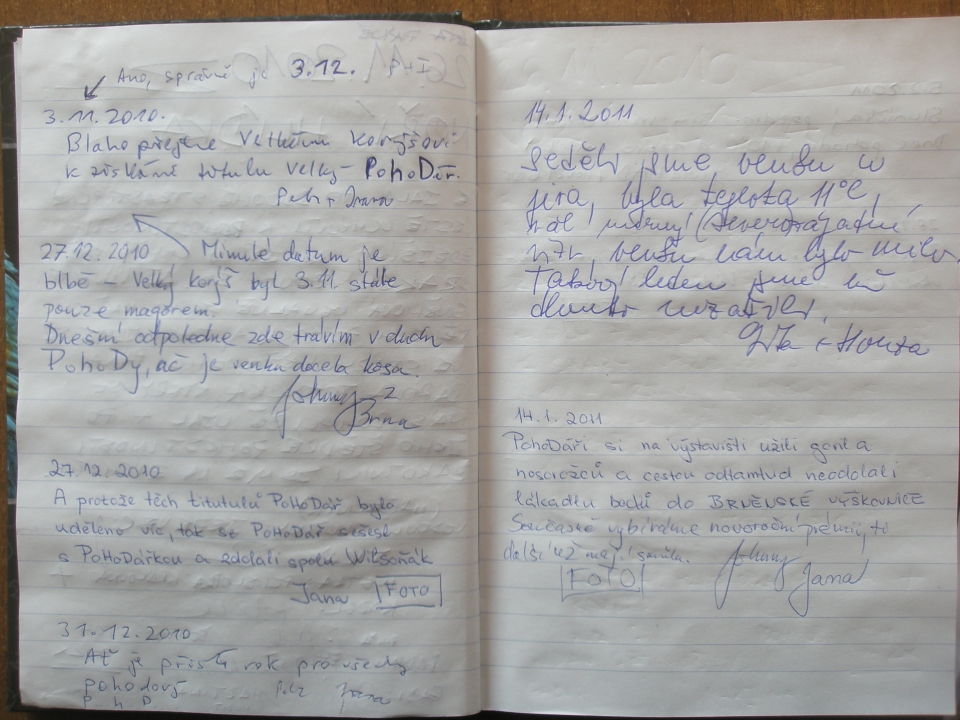 Ano, správně je 3.12. I+P
3.11.2010.
Blahopřejeme Velkému Korýšovi
k získání titulu Velký - PohoDář.
Petr + Ivana
27.12.2010 Minulé datum je
blbě - Velký korýš byl 3.11. stále
pouze magorem.
Dnešní odpoledne zde trávím v duchu
PohoDy, ač je venku docela kosa.
Johnny z
Brna
27.12.2010
A protože těch titutulů PoHoDář bylo
uděleno víc, tak se PoHoDář sešel
s PoHoDářkou a zdolali spolu Wilsoňák
Jana FOTO
31.12.2010
Ať je příští rok pro všechny
pohodový
P h D
14.1.2011
Seděli jsme venku v
jíra, byla teplota 11°C,
vál mírný (severozápadní
vítr, venku nám bylo milo.
Takový leden jsme už
dlouho nezažili.
+ Honza
14.1.2011
PohoDáři si na výstavišti užili goril a
nosorožců a cestou odtamtud neodolali
lákadlu bodů do BRNĚNSKÉ VÝŠKOVNICE
Současně vybíráme novoroční prémii, ti
další už mají smůlu.
FOTO Johnny
Jana